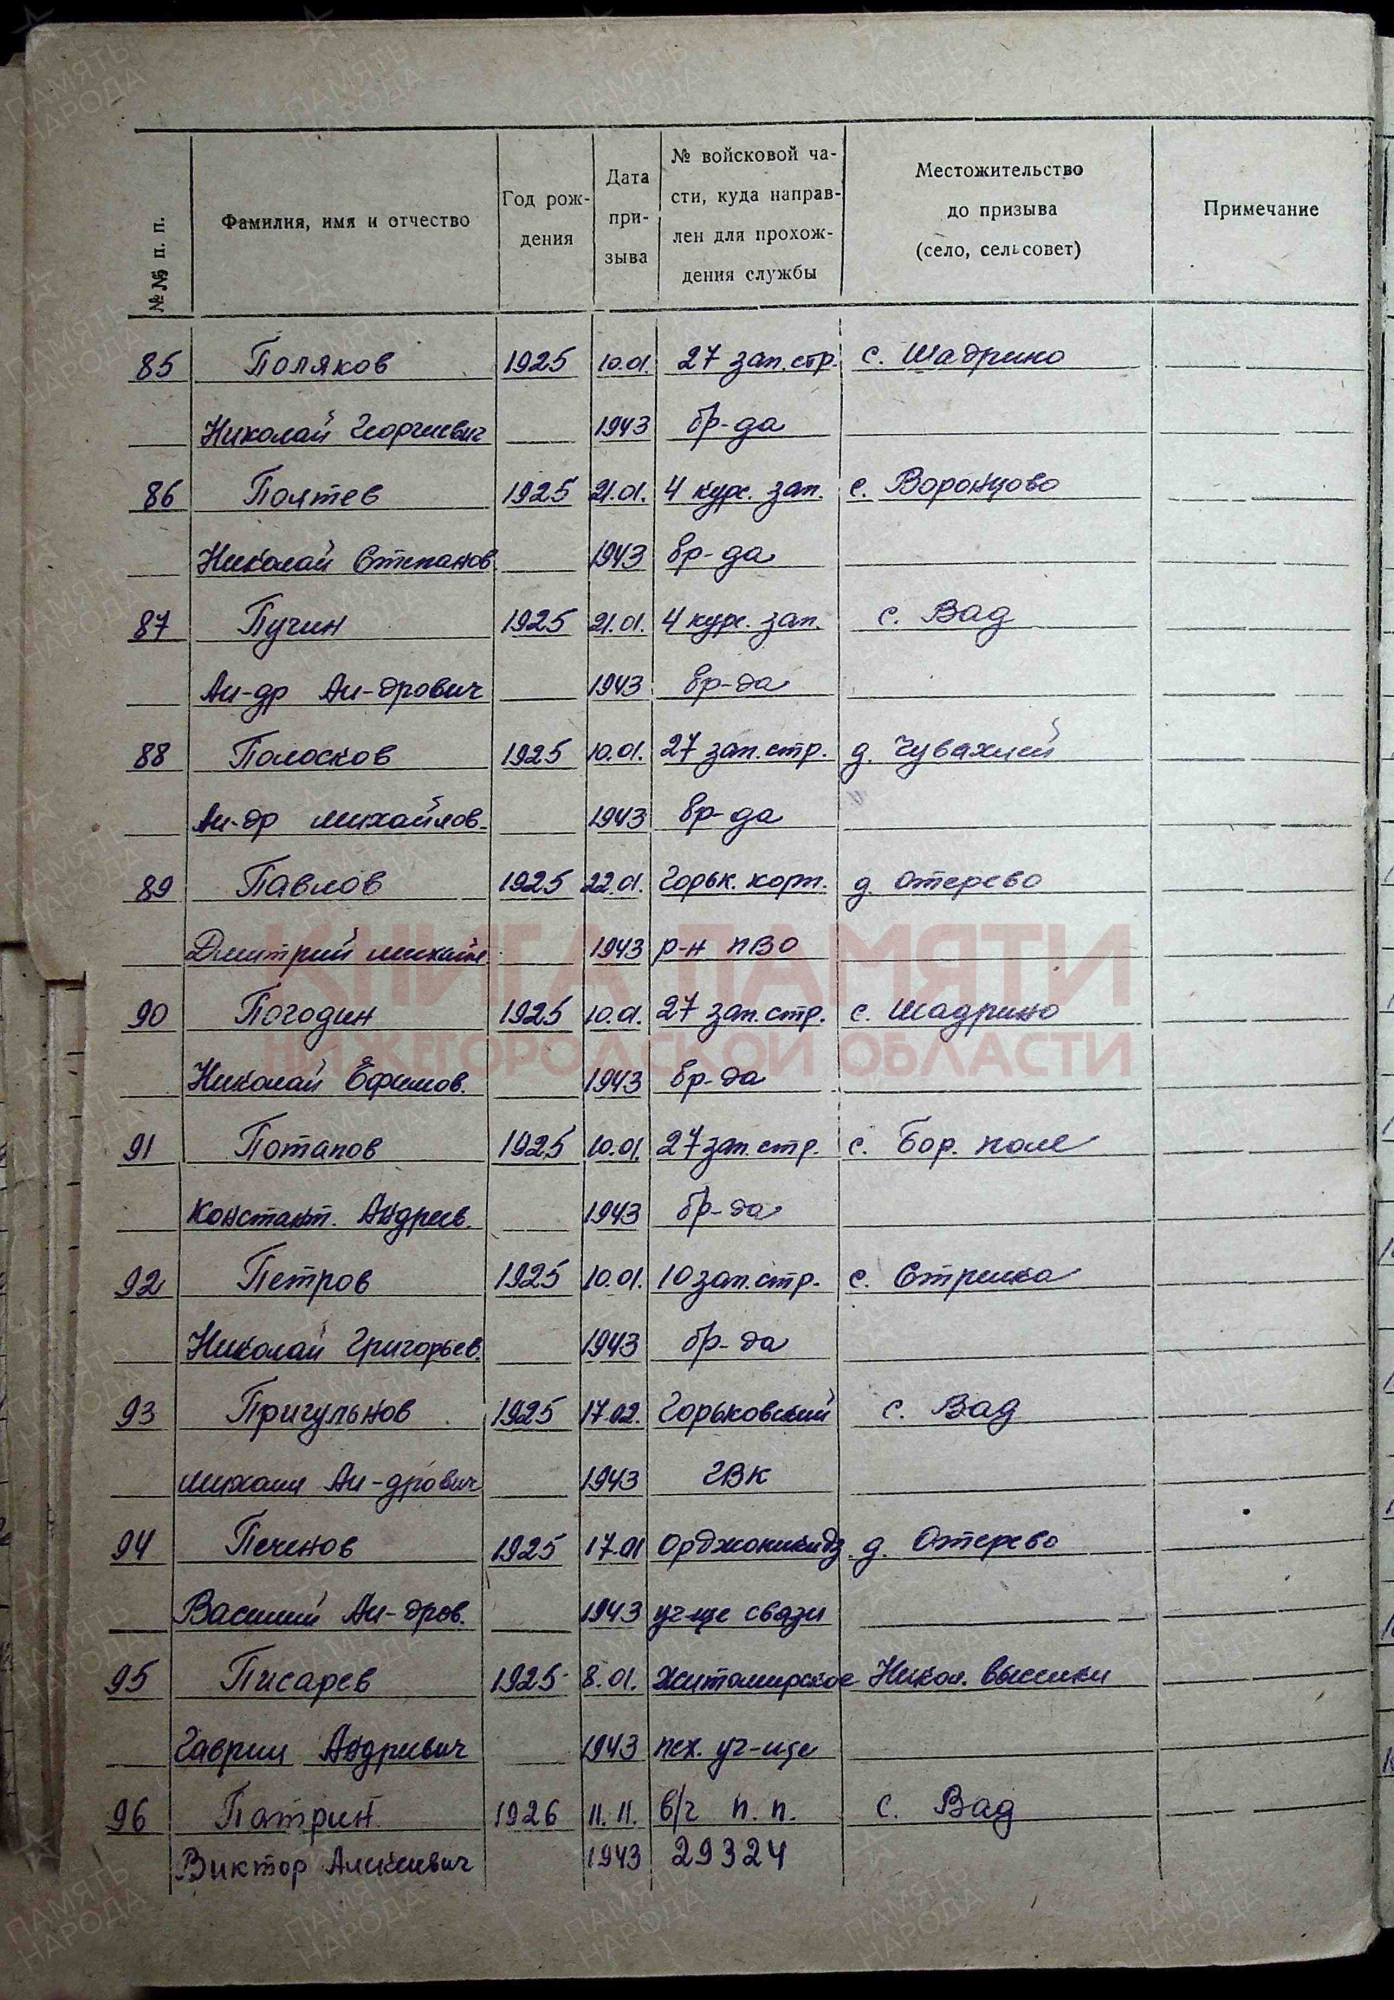 №№ п. п.
Фамилия, имя и отчество
Год рож-
дения
Дата
при-
зыва
№ войсковой ча-
сти, куда направ-
лен для прохож-
дения службы
Местожительство
до призыва
(село, сельсовет)
Примечание
85 Поляков 1925 10.01. 27 зап. стр. с. Шадрино
Николай Георгиевич 1943 бр-да
86 Полтев 1925 21.01. 4 курс. зап. с. Воронцово
Николай Степанов. 1943 бр-да
87 Пучин 1925 21.01. 4 курс. зап. с. Вад
Ал-др Ал-дрович 1943 бр-да
88 Полосков 1925 10.01. 27 зап. стр. д. Чувахлей
Ал-др Михайлов. 1943 бр-да
89 Павлов 1925 22.01. Горьк. корп. д. Отерево
Дмитрий Михайл. 1943 р-н ПВО
КНИГА ПАМЯТИ
90 Погодин 1925 10.01. 27 зап. стр. с. Шадрино
НИЖЕГОРОДСКОЙ ОБЛАСТИ
Николай Ефимов. 1943 бр-да
91 Потапов 1925 10.01. 27 зап. стр. с. Бор. поле
Констант. Андреев. 1943 бр-да
92 Петров 1925 10.01. 10 зап. стр. с. Стрелка
Николай Григорьев. 1943 бр-да
93 Пригульнов 1925 17.02. Горьковский с. Вад
Михаил Ал-дрович 1943 ГВК
94 Печенов 1925 17.01 Орджоникидз. д. Отерево
Василий Ал-дров. 1943 уч-ще связи
95 Писарев 1925 8.01. Житомирское Никол. выселки
Гаврил Андреевич 1943 пех. уч-ще
96 Патрин 1926 11.11. в/ч п.п. с. Вад
Виктор Алексеевич 1943 29324
ПАМЯТЬ
НАРОДА